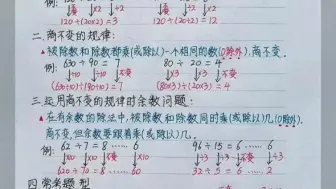 120÷(20×2)=3
120÷(20÷2)=12
二.商不变的规律:
•被除数和除数都乘(或除以)一个相同的数(0除外).商不变.
例: 630÷90=7 80÷20=4
÷10 ÷10 不变 ×3 ×3 不变
(630÷10)÷(90÷10)=7 (80×3)÷(20×3)=4
三.运用商不变的规律时余数问题:
•在有余数的除法中,被除数和除数同时乘(或除以)几(0除外).
商不变,但余数要跟着乘(或除以)几.
例: 62÷7=8……6 96÷15=6……6
×10 ×10 不变 ×10 ÷3 ÷3 不变 ÷3
620÷70=8……60 32÷5=6……2
四.常考题型